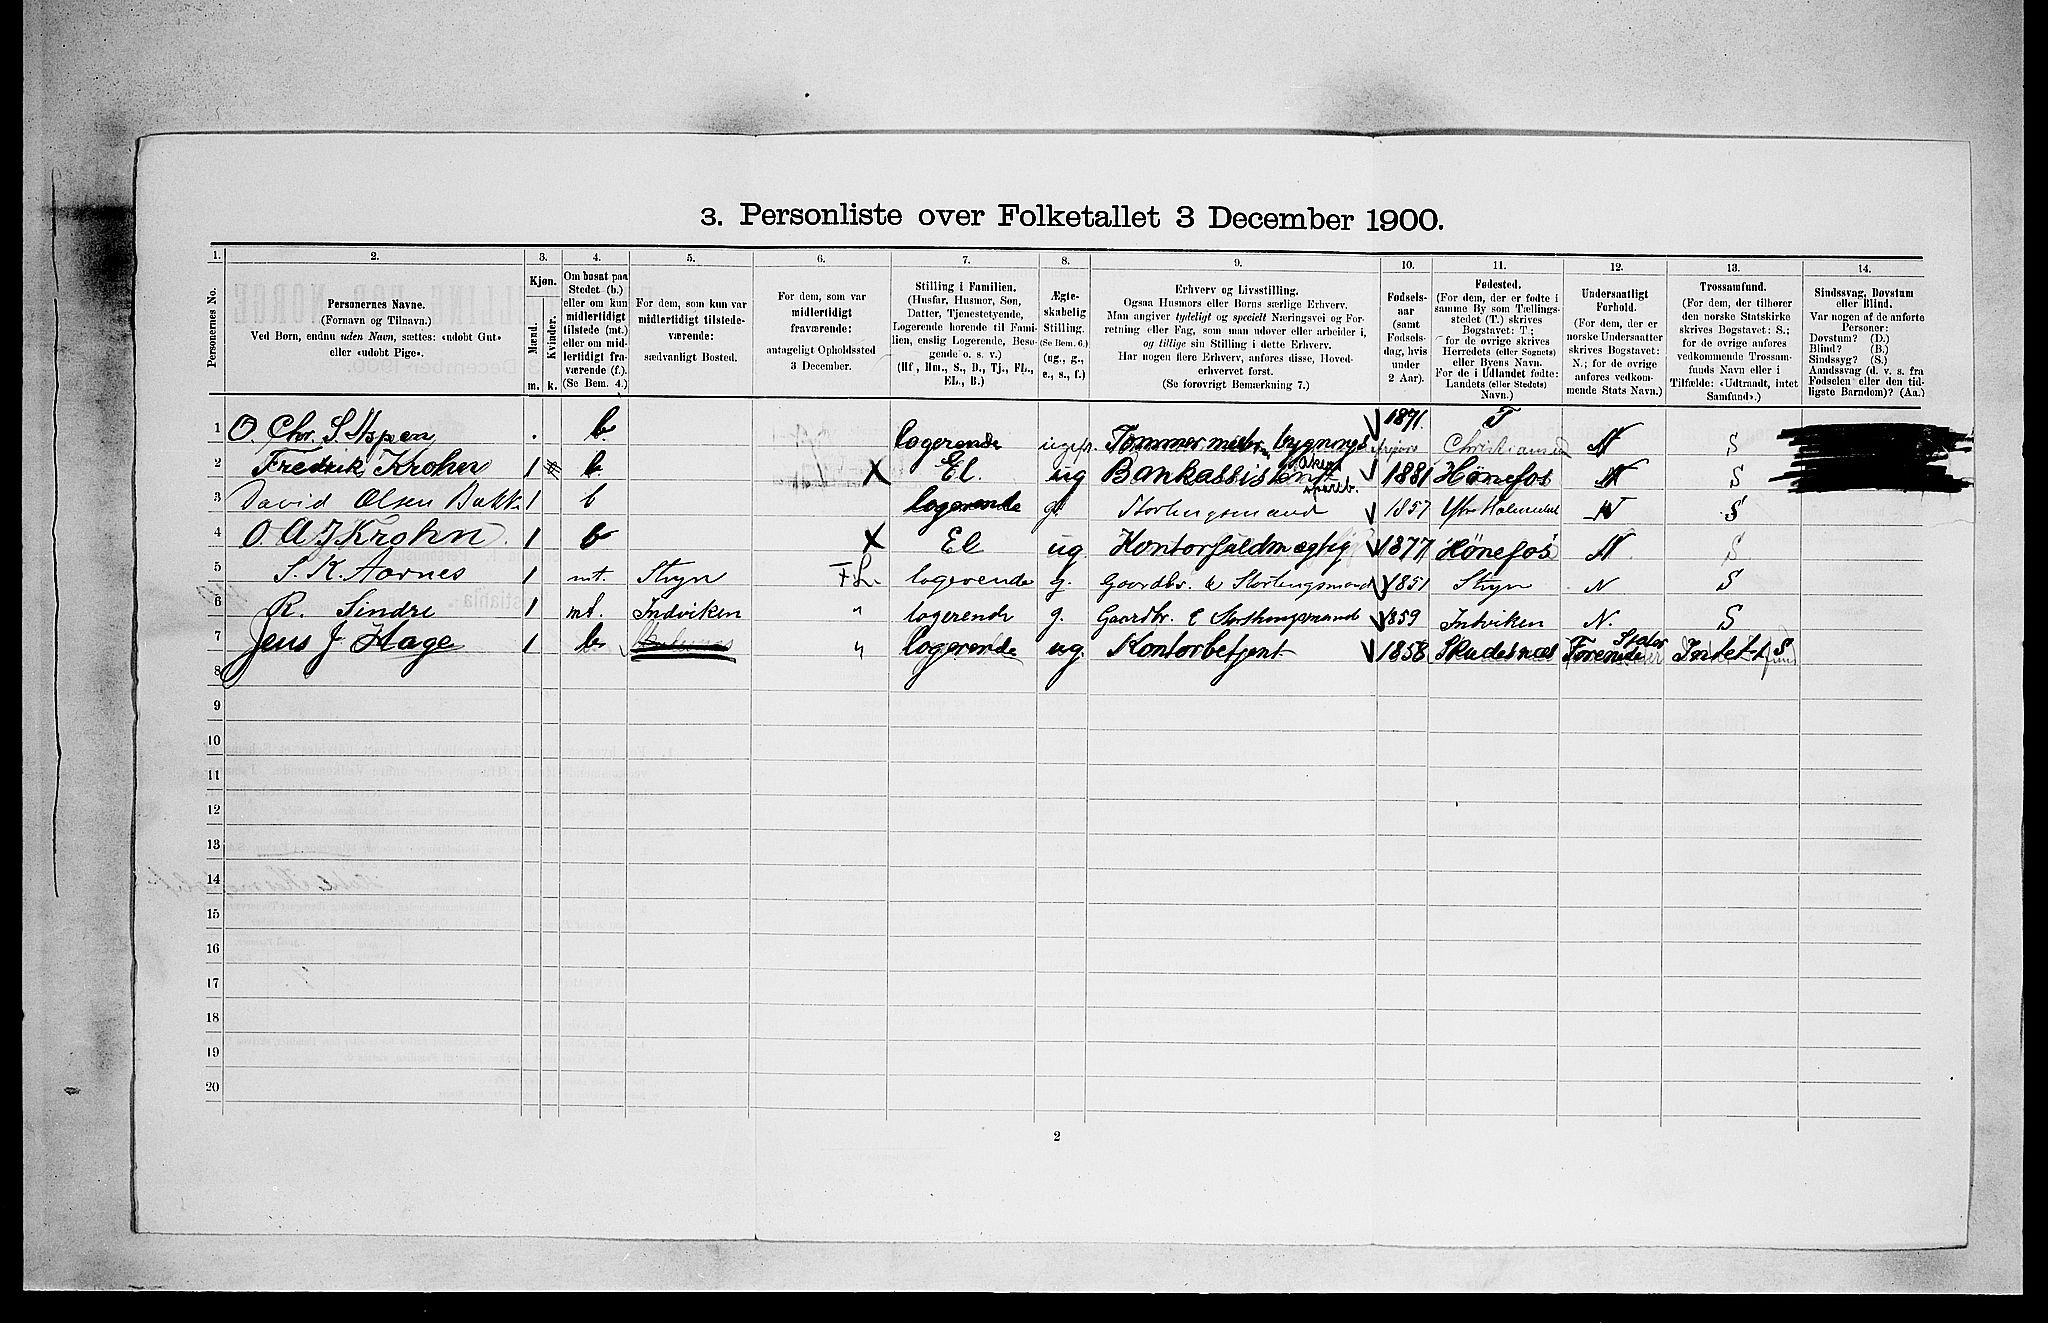 3. Personliste over Folketallet 3 December 1900.
1. 2. 3. 4. 5. 6. 7. 8. 9. 10. 11. 12. 13. 14.
Personernes No.
Personernes Navne.
(Fornavn og Tilnavn.)
Ved Børn, endnu uden Navn, sættes: «udøbt Gut»
eller «udøbt Pige».
Kjøn.
Mænd.
Kvinder.
m. k.
Om bosat paa
Stedet (b.)
eller om kun
midlertidigt
tilstede (mt.)
eller om mid-
lertidigt fra-
værende (f.).
(Se Bem. 4.)
For dem, som kun var
midlertidigt tilstede-
værende:
sædvanligt Bosted.
For dem, som var
midlertidigt
fraværende:
antageligt Opholdssted
3 December.
Stilling i Familien.
(Husfar, Husmor, Søn,
Datter, Tjenestetyende,
Løgerende hørende til Fami-
lien, enslig Løgerende, Besø-
gende o. s. v.)
(Hf, Hm., S., D., Tj., Fl.,
El., B.)
Ægte-
skabelig
Stilling.
(Se Bem. 6.)
(ug., g.,
e., s., f.)
Erhverv og Livsstilling.
Ogsaa Husmors eller Børns særlige Erhverv.
Man angiver tydeligt og specielt Næringsvei og For-
retning eller Fag, som man udøver eller arbeider i,
og tillige sin Stilling i dette Erhverv.
Har nogen flere Erhverv, anføres disse, Hoved-
erhvervet først.
(Se forøvrigt Bemærkning 7.)
Fødsels-
aar
(samt
Fødsels-
dag, hvis
under
2 Aar).
Fødested.
(For dem, der er fødte i
samme By som Tællings-
stedet (T.) skrives
Bogstavet: T;
for de øvrige skrives
Herredets (eller Sognets)
eller Byens Navn.
For de i Udlandet fødte:
Landets (eller Stedets)
Navn.)
Undersaatligt
Forhold.
(For dem, der er
norske Undersaatter
skrives Bogstavet:
N.; for de øvrige
anføres vedkom-
mende Stats Navn.)
Trossamfund.
(For dem, der tilhører
den norske Statskirke
skrives Bogstavet: S.;
for de øvrige anføres
vedkommende Trossam-
funds Navn eller i
Tilfælde: «Udtraadt, intet
Samfund».)
Sindssvag, Døvstum
eller Blind.
Var nogen af de anførte
Personer:
Døvstum? (D.)
Blind? (B.)
Sindssyg? (S.)
Aandssvag (d. v. s. fra
Fødselen eller den tid-
ligste Barndom)? (Aa.)
1 O. Chr. S. Aspen b. logerende 1871. T N S
2 Fredrik Krohn 1 b. X El. ug Bankassistent 1881 Hønefos N S
3 David Olsen Bakke 1 b logerende g. Stortingsmand 1857 N S
4 O. A. J Krohn. 1 b X El ug Kontorfuldmægtig 1877 Hønefos N S
5 S. K. Aarnes 1 mt. Stryn F. L. logerende g. Gaardbr. & Stortingsmand 1851 Stryn N S
6 R. Sindre 1 mt. Indviken " logerende g. Gaardbr. & Storthingsmand 1859 Indviken N. S
7 Jens J Hage 1 b " logerende ug. Kontorbetjent 1858 Skudesnæs Forenede Stater Intet S
8
9
10
11
12
13
14
15
16
17
18
19
20
2